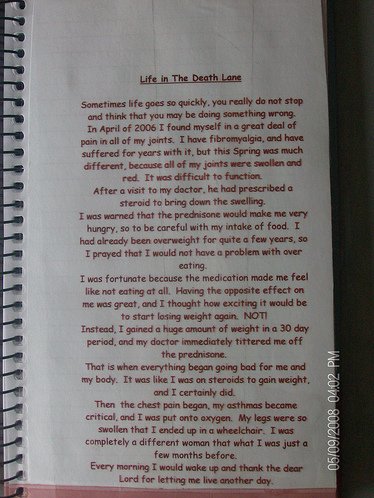 Life in The Death Lane
Sometimes life goes so quickly, you really do not stop
and think that you may be doing something wrong.
In April of 2006 I found myself in a great deal of
pain in all of my joints. I have fibromyalgia, and have
suffered for years with it, but this Spring was much
different, because all of my joints were swollen and
red. It was difficult to function.
After a visit to my doctor, he had prescribed a
steroid to bring down the swelling.
I was warned that the prednisone would make me very
hungry, so to be careful with my intake of food. I
had already been overweight for quite a few years, so
I prayed that I would not have a problem with over
eating.
I was fortunate because the medication made me feel
like not eating at all. Having the opposite effect on
me was great, and I thought how exciting it would be
to start losing weight again. NOT!
Instead, I gained a huge amount of weight in a 30 day
period, and my doctor immediately tittered me off
the prednisone.
That is when everything began going bad for me and
my body. It was like I was on steroids to gain weight,
and I certainly did.
Then the chest pain began, my asthmas became
critical, and I was put onto oxygen. My legs were so
swollen that I ended up in a wheelchair. I was
completely a different woman that what I was just a
few months before.
Every morning I would wake up and thank the dear
Lord for letting me live another day.
05/09/2008 04:02 PM